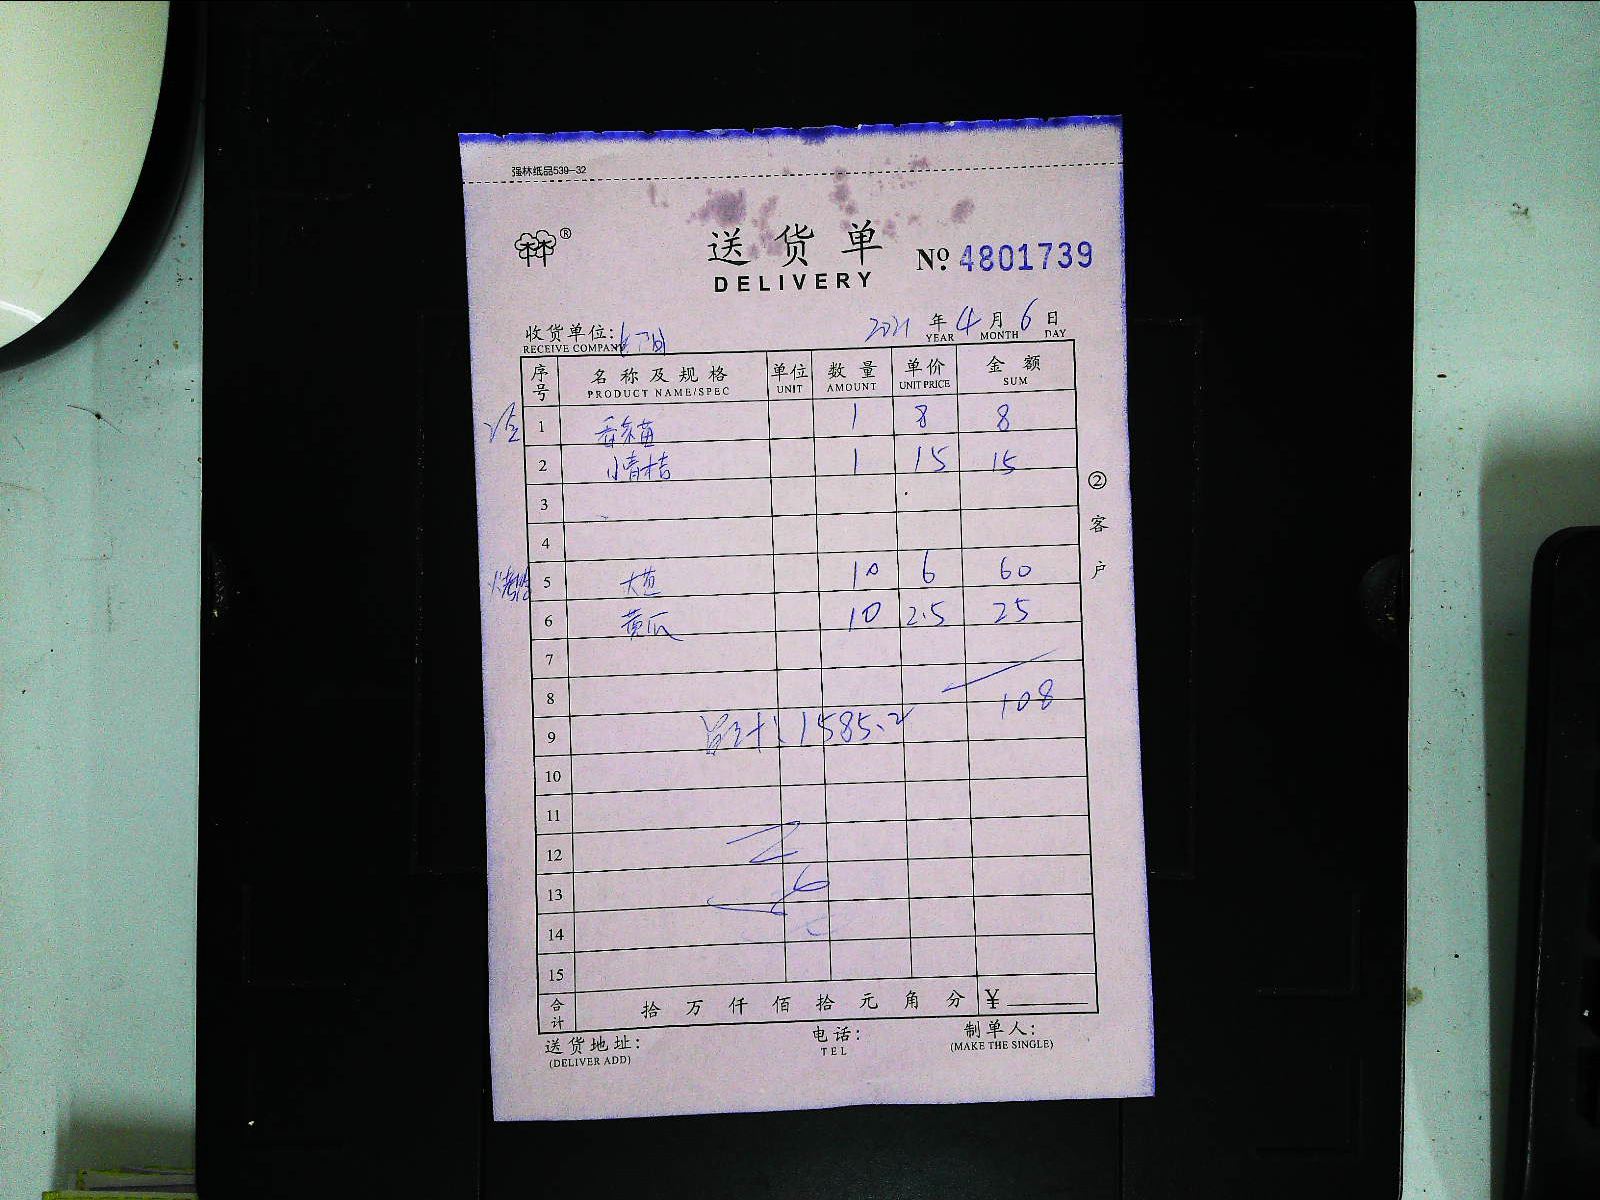 强林纸品539-32
林林®
送货单
DELIVERY
No. 4801739
收货单位:
RECEIVE COMPANY
2021 年 4 月 6 日
YEAR MONTH DAY
序号 名称及规格 单位 数量 单价 金额
PRODUCT NAME/SPEC UNIT AMOUNT UNIT PRICE SUM
1 香茅苗 1 8 8
2 小青桔 1 15 15
3
4
5 大葱 10 6 60
6 黄瓜 10 2.5 25
7
8
108
9 总计: 1585.2
10
11
12
13
14
15
合计 拾 万 仟 佰 拾 元 角 分 ¥
② 客户
送货地址: 电话: 制单人:
(DELIVER ADD) TEL (MAKE THE SINGLE)